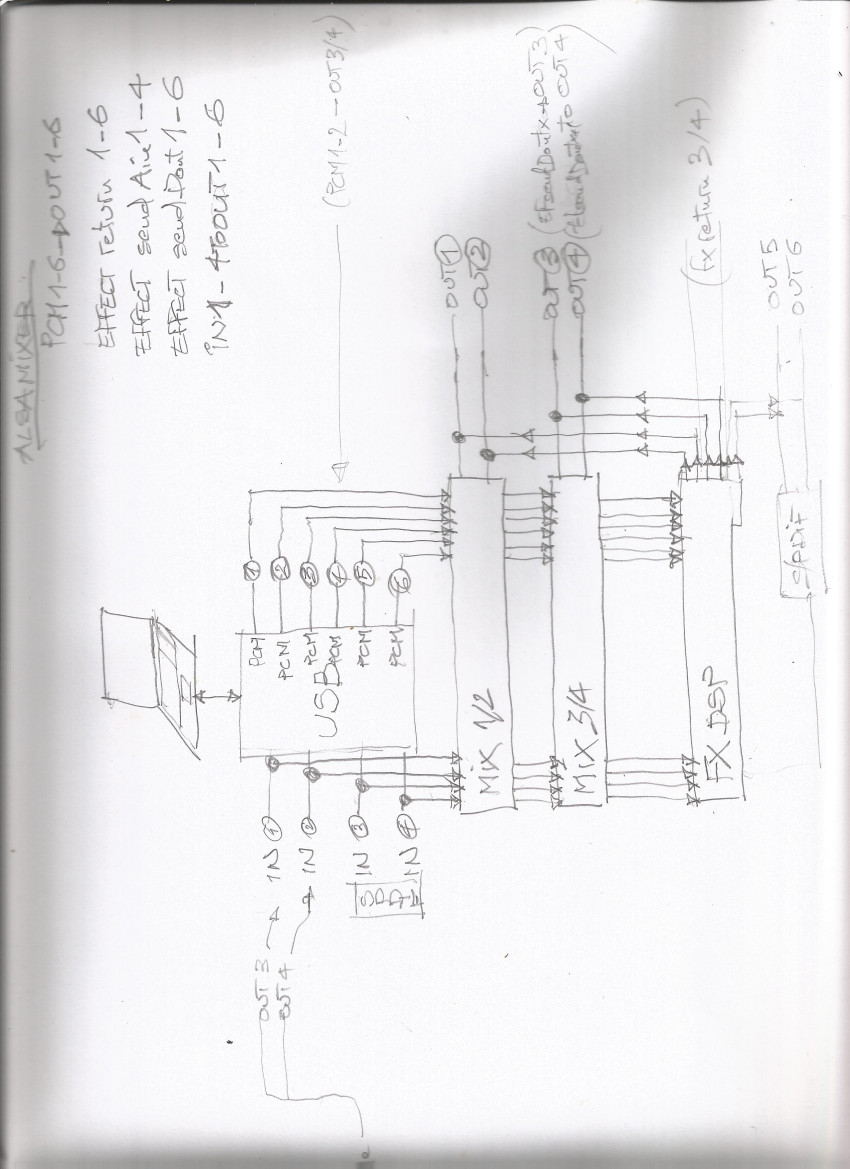 ALSAMIXER
PCM1-6-DOUT1-6
EFFECT return 1-6
EFFECT send Ain 1-4
EFFECT send Dout 1-6
IN1-4 TO OUT 1-6
(PCM1-2-OUT3/4)
PCM 1
PCM 2
PCM 3
PCM 4
PCM 5
PCM 6
USB
OUT 3
OUT 4
IN 1
IN 2
IN 3
IN 4
SPDIF
MIX 1/2
OUT 1
OUT 2
MIX 3/4
OUT 3
OUT 3)
OUT 4
to OUT 4)
FX DSP
(FX return 3/4)
S/PDIF
OUT 5
OUT 6